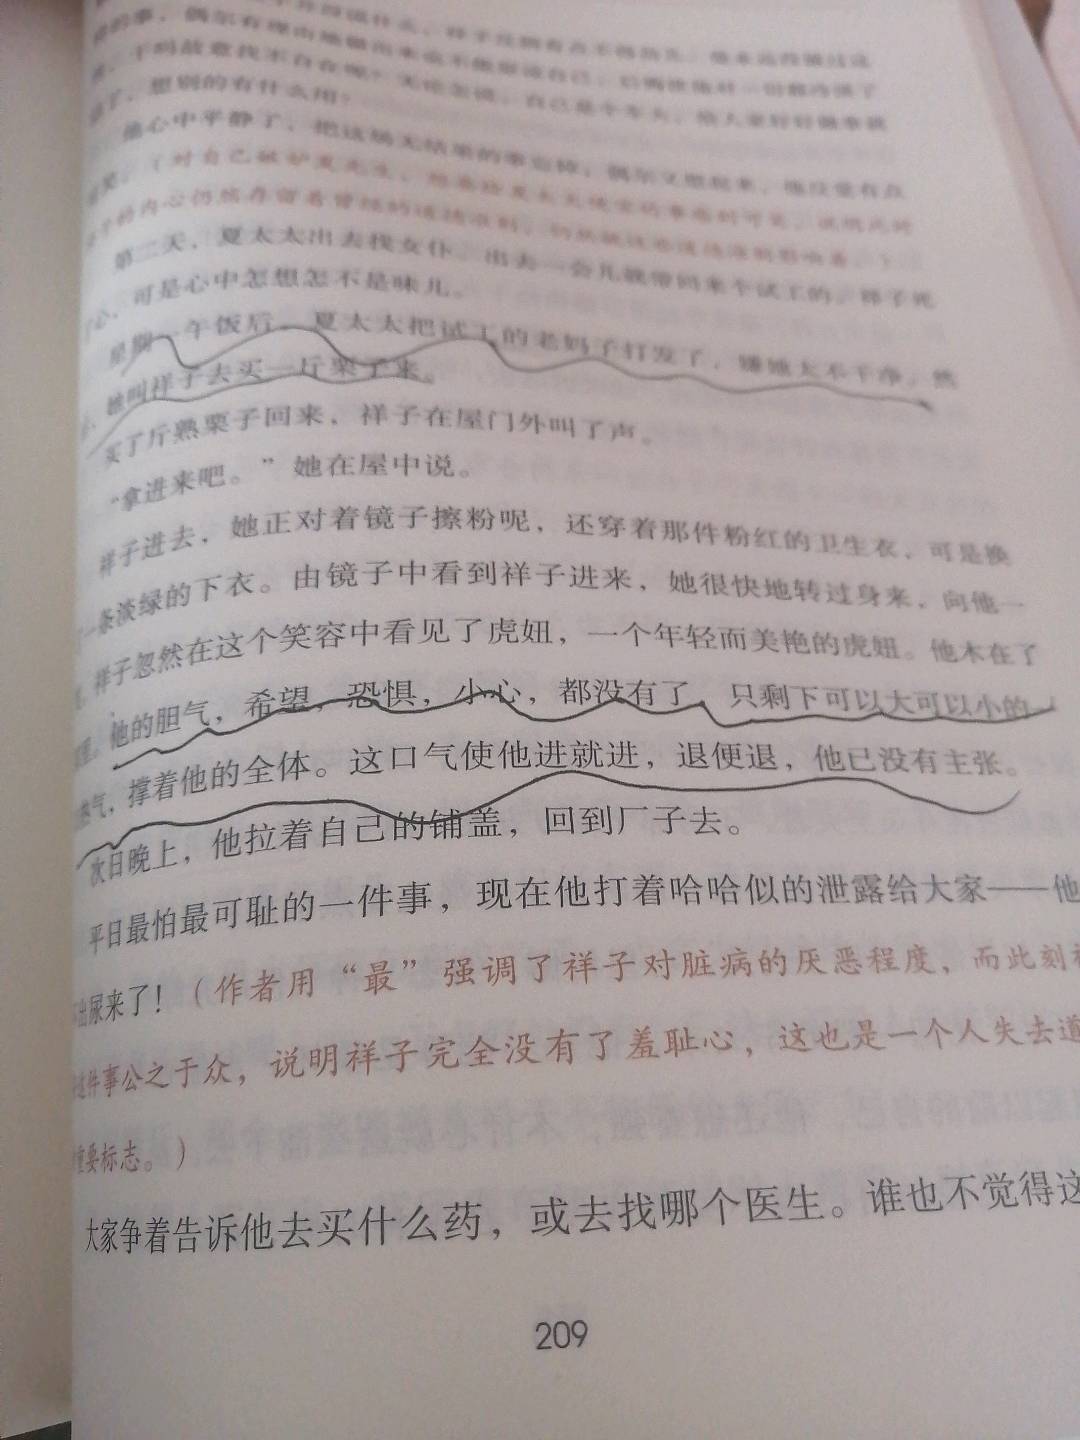 干吗故意找不自在呢？无论怎说，自己是个车夫，给人家好好做事就
想别的有什么用？
他心中平静了，把这场无结果的事忘掉；偶尔又想起来，他反觉有点
第二天，夏太太出去找女仆。出去一会儿就带回来个试工的。祥子死
心，可是心中怎想怎不是味儿。
星期一午饭后，夏太太把试工的老妈子打发了，嫌她太不干净。然
她叫祥子去买一斤栗子来。
买了斤熟栗子回来，祥子在屋门外叫了声。
“拿进来吧。”她在屋中说。
祥子进去，她正对着镜子擦粉呢，还穿着那件粉红的卫生衣，可是换
一条淡绿的下衣。由镜子中看到祥子进来，她很快地转过身来，向他一
祥子忽然在这个笑容中看见了虎妞，一个年轻而美艳的虎妞。他木在了
他的胆气，希望，恐惧，小心，都没有了，只剩下可以大可以小的
热气，撑着他的全体。这口气使他进就进，退便退，他已没有主张。
次日晚上，他拉着自己的铺盖，回到厂子去。
平日最怕最可耻的一件事，现在他打着哈哈似的泄露给大家——他
出尿来了！（作者用“最”强调了祥子对脏病的厌恶程度，而此刻
这件事公之于众，说明祥子完全没有了羞耻心，这也是一个人失去道
重要标志。）
大家争着告诉他去买什么药，或去找哪个医生。谁也不觉得这
209